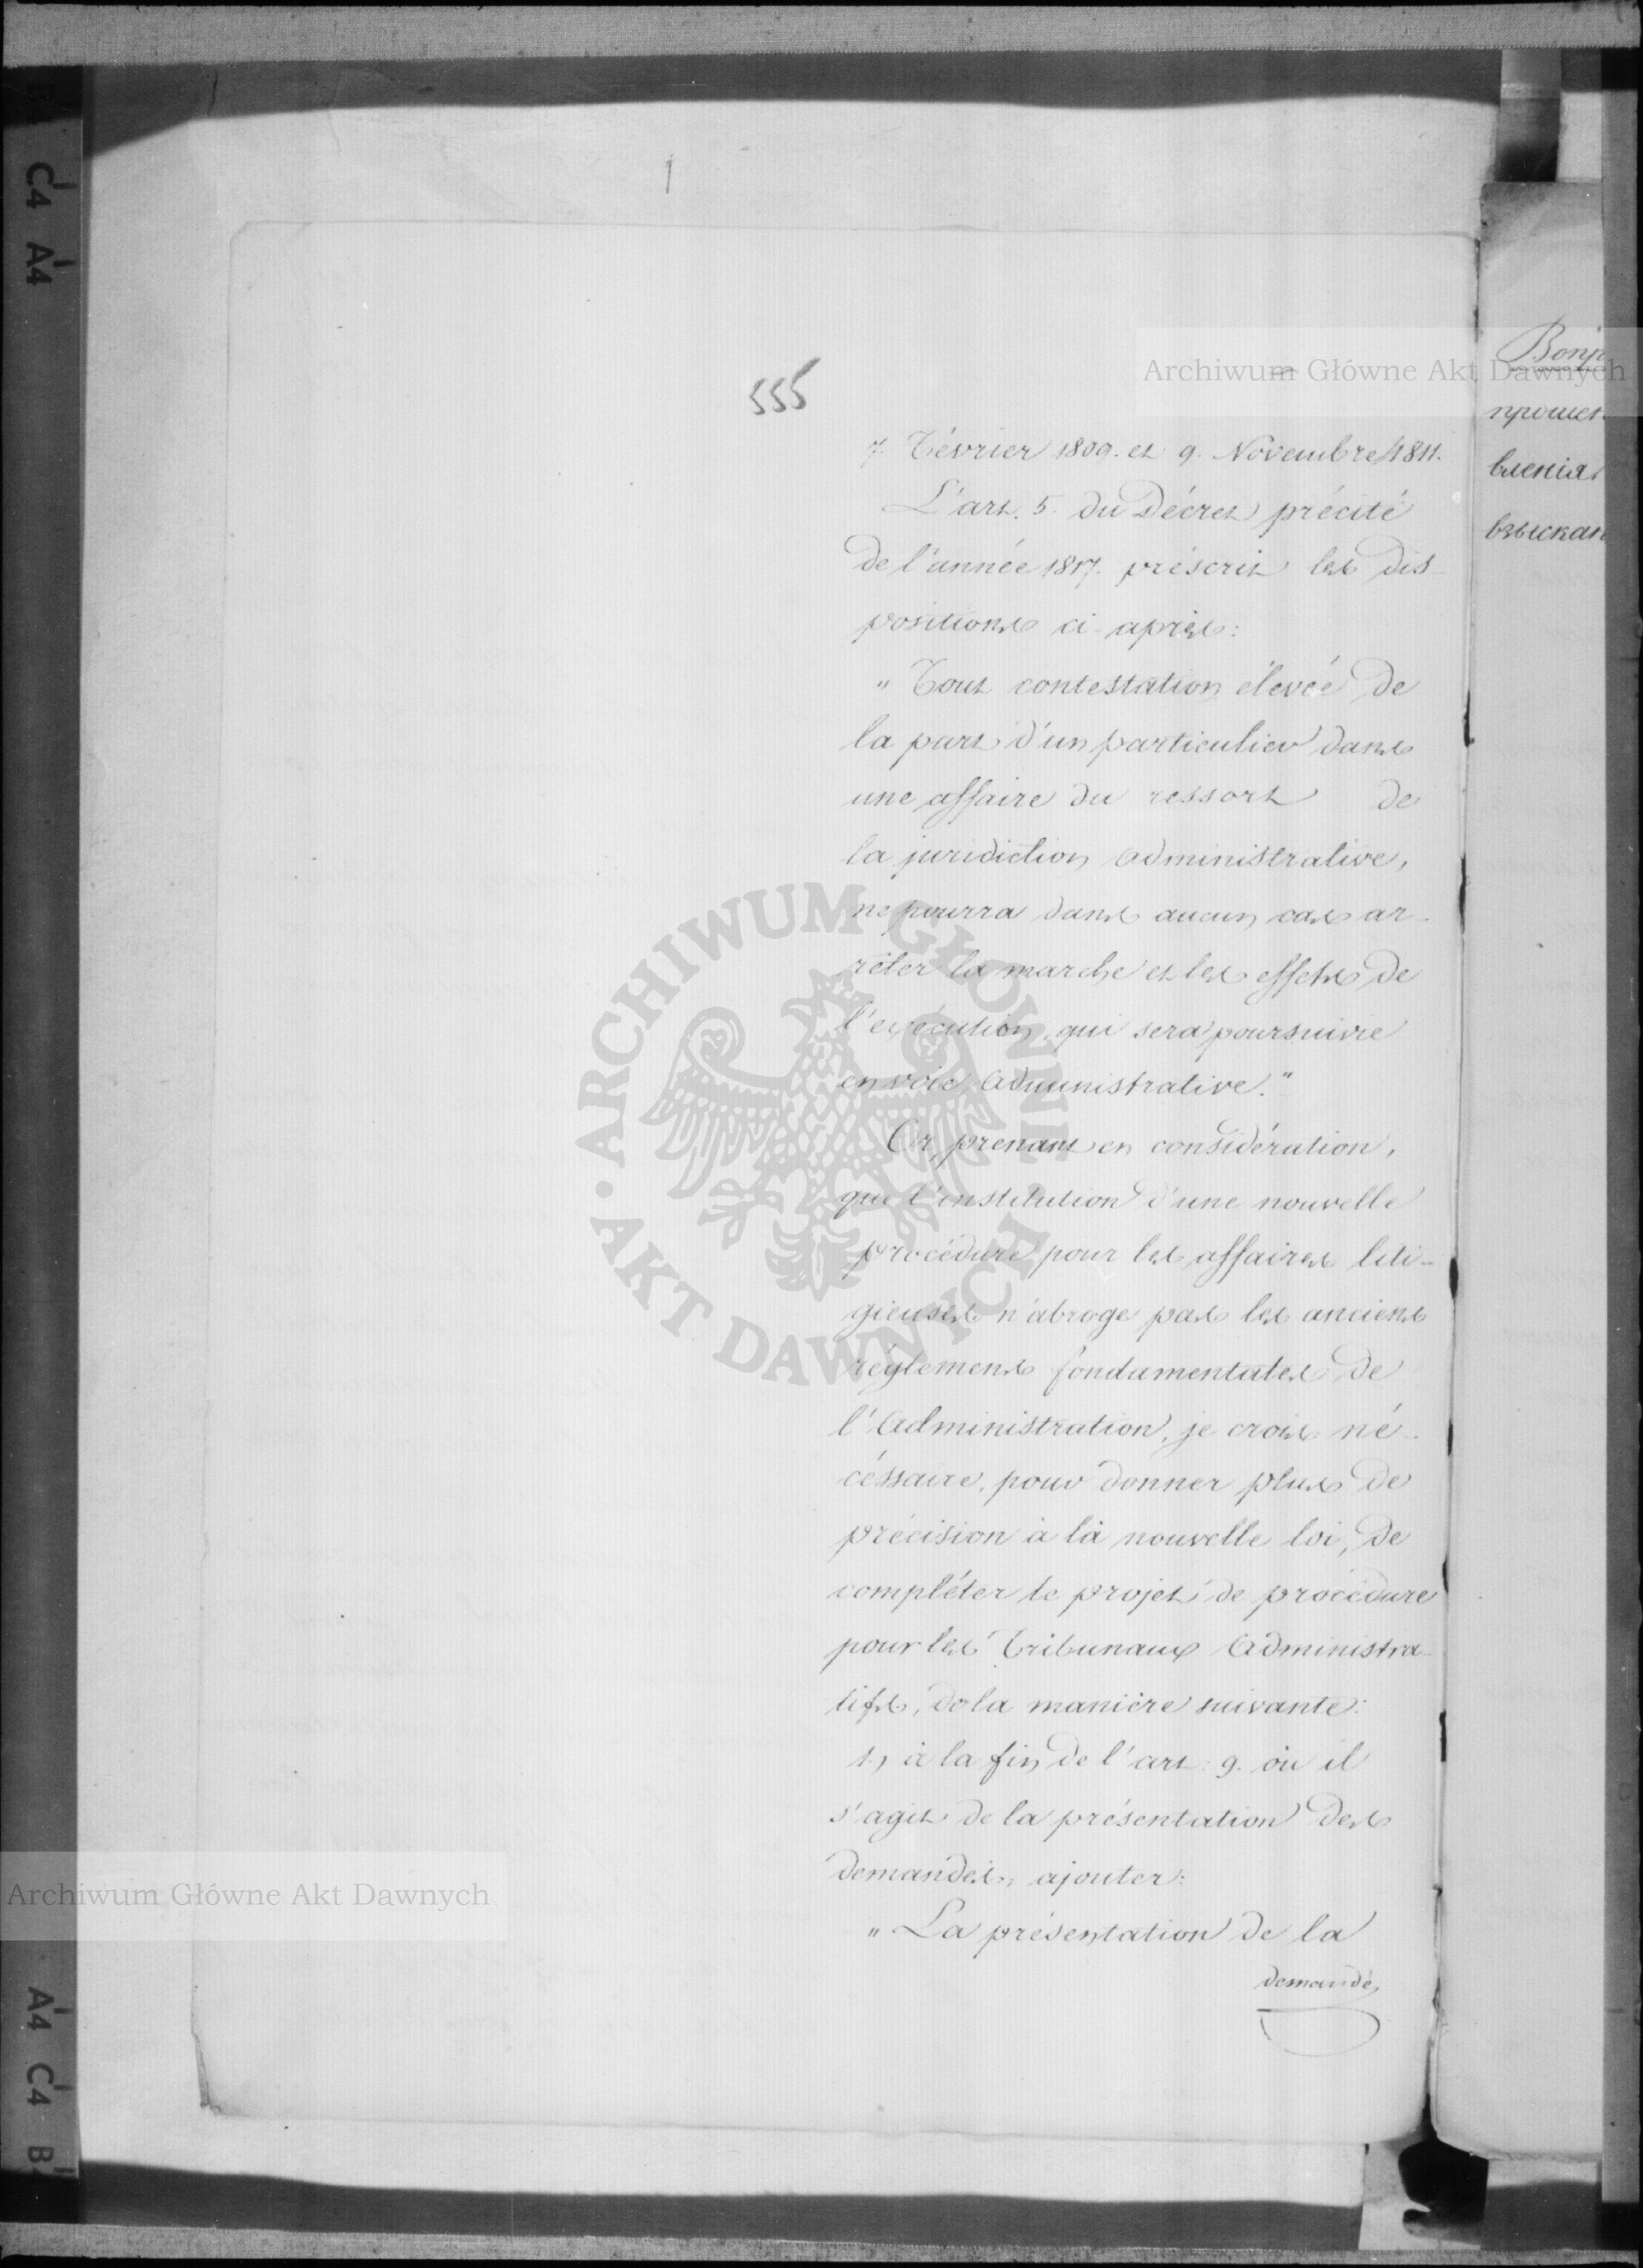 555
7. Février 1809. et 9. Novembre 1811.
L'art. 5. du Décret précité
de l'année 1817. préscrit les dis-
positions ci-après:
" Tout contestation élevée de
la part d'un particulier dans
une affaire du ressort de
la juridiction Administrative,
ne pourra dans aucun cas ar-
rêter la marche et les effets de
l'exécution, qui sera poursuivie
en voie Administrative."
Or, prenant en considération,
que l'institution d'une nouvelle
procédure pour les affaires liti-
gieuses n'abroge pas les anciens
réglemens fondamentales de
l'Administration, je crois né-
céssaire, pour donner plus de
précision à la nouvelle loi, de
compléter le projet de procédure
pour les Tribunaux Administra-
tifs, de la manière suivante:
1.) à la fin de l'art: 9. où il
s'agit de la présentation des
demandes, ajouter:
" La présentation de la
demande
Вопр
прошен
вленія
взыскан
Archiwum Główne Akt Dawnych
ARCHIWUM GŁÓWNE · AKT DAWNYCH ·
Archiwum Główne Akt Dawnych
C4 A4
A4 C4 B